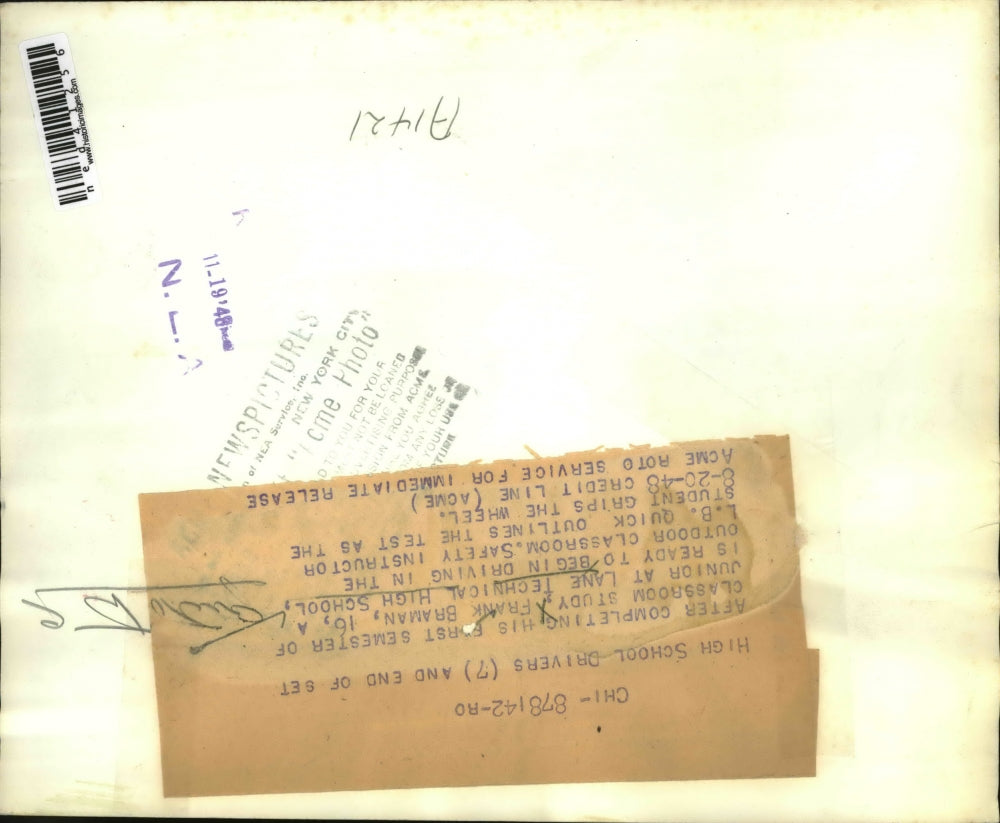 CHI- 878142-RO
HIGH SCHOOL DRIVERS (7) AND END OF SET
AFTER COMPLETING HIS FIRST SEMESTER OF
CLASSROOM STUDY, FRANK BRAMAN, 16, A
JUNIOR AT LANE TECHNICAL HIGH SCHOOL,
IS READY TO BEGIN DRIVING IN THE
OUTDOOR CLASSROOM. SAFETY INSTRUCTOR
L.B. QUICK OUTLINES THE TEST AS THE
STUDENT GRIPS THE WHEEL.
8-20-48 CREDIT LINE (ACME)
ACME ROTO SERVICE FOR IMMEDIATE RELEASE
NEWSPICTURES
of NEA Service, Inc.
NEW YORK CITY
"Acme Photo"
TO YOU FOR YOUR
NOT BE LOANED
PURPOSE
FROM ACME
YOU AGREE
ANY LOSS
YOUR USE
A1421
11-19-48
www.historicimages.com
ned41256